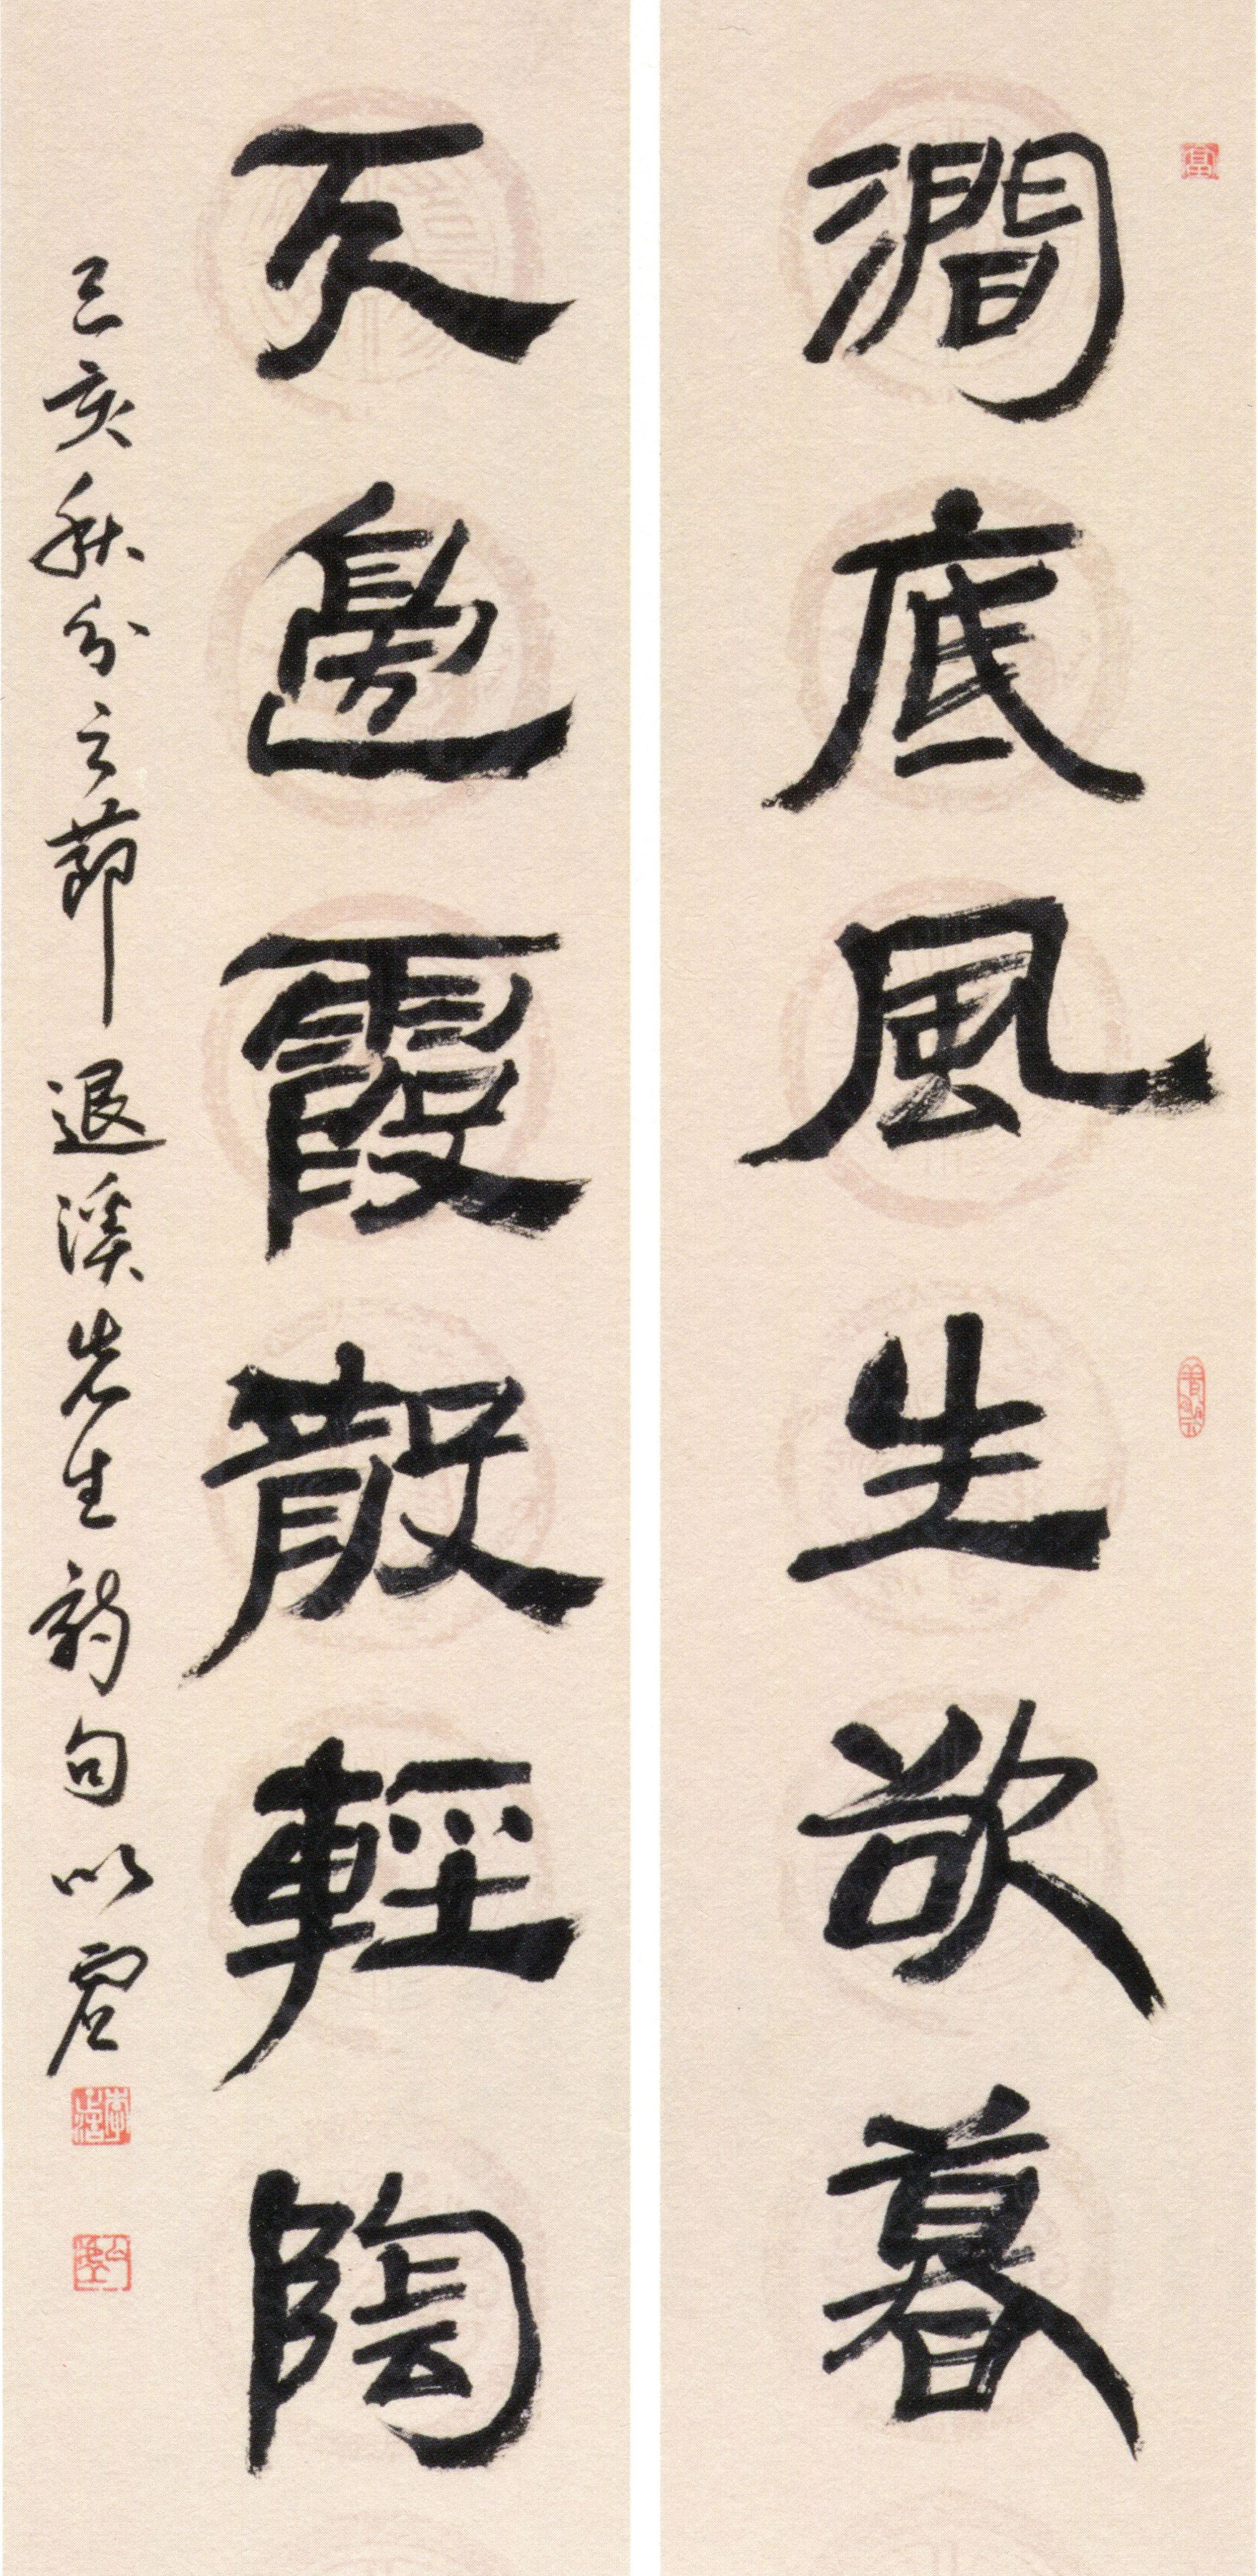 澗底風生欲暮
天邊霞散輕陶
己亥秋分之節 退溪先生詩句 以